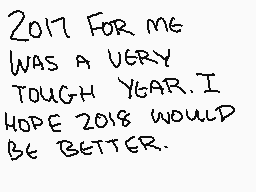 2017 FOR ME
WAS A VERY
TOUGH YEAR. I
HOPE 2018 WOULD
BE BETTER.